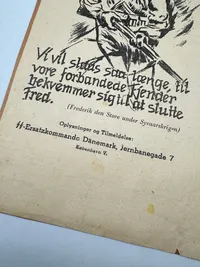 Vi vil slaas saa længe, til
vore forbandede Fjender
bekvemmer sig til at slutte
Fred.
(Frederik den Store under Syvaarskrigen)
Oplysninger og Tilmeldelse:
SS-Ersatzkommando Dänemark, Jernbanegade 7
København V.